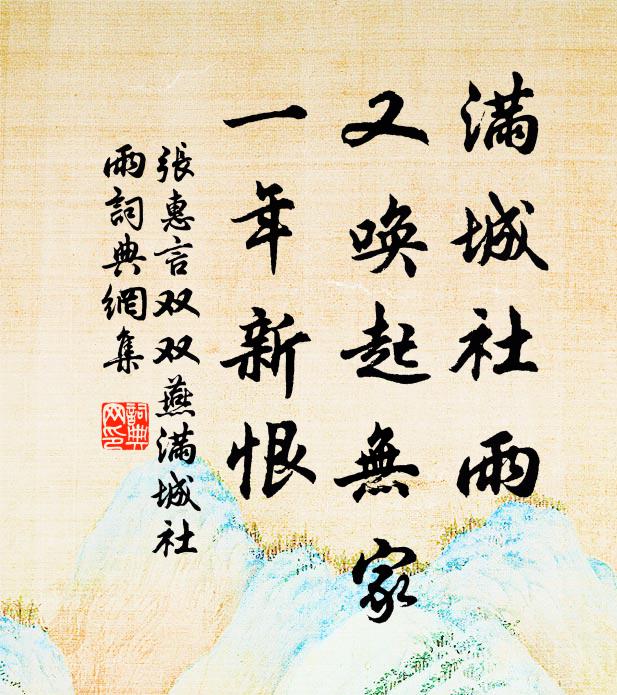 滿城社雨
又喚起無家
一年新恨
張惠言双双燕滿城社
雨詞典網集
詞典
网印